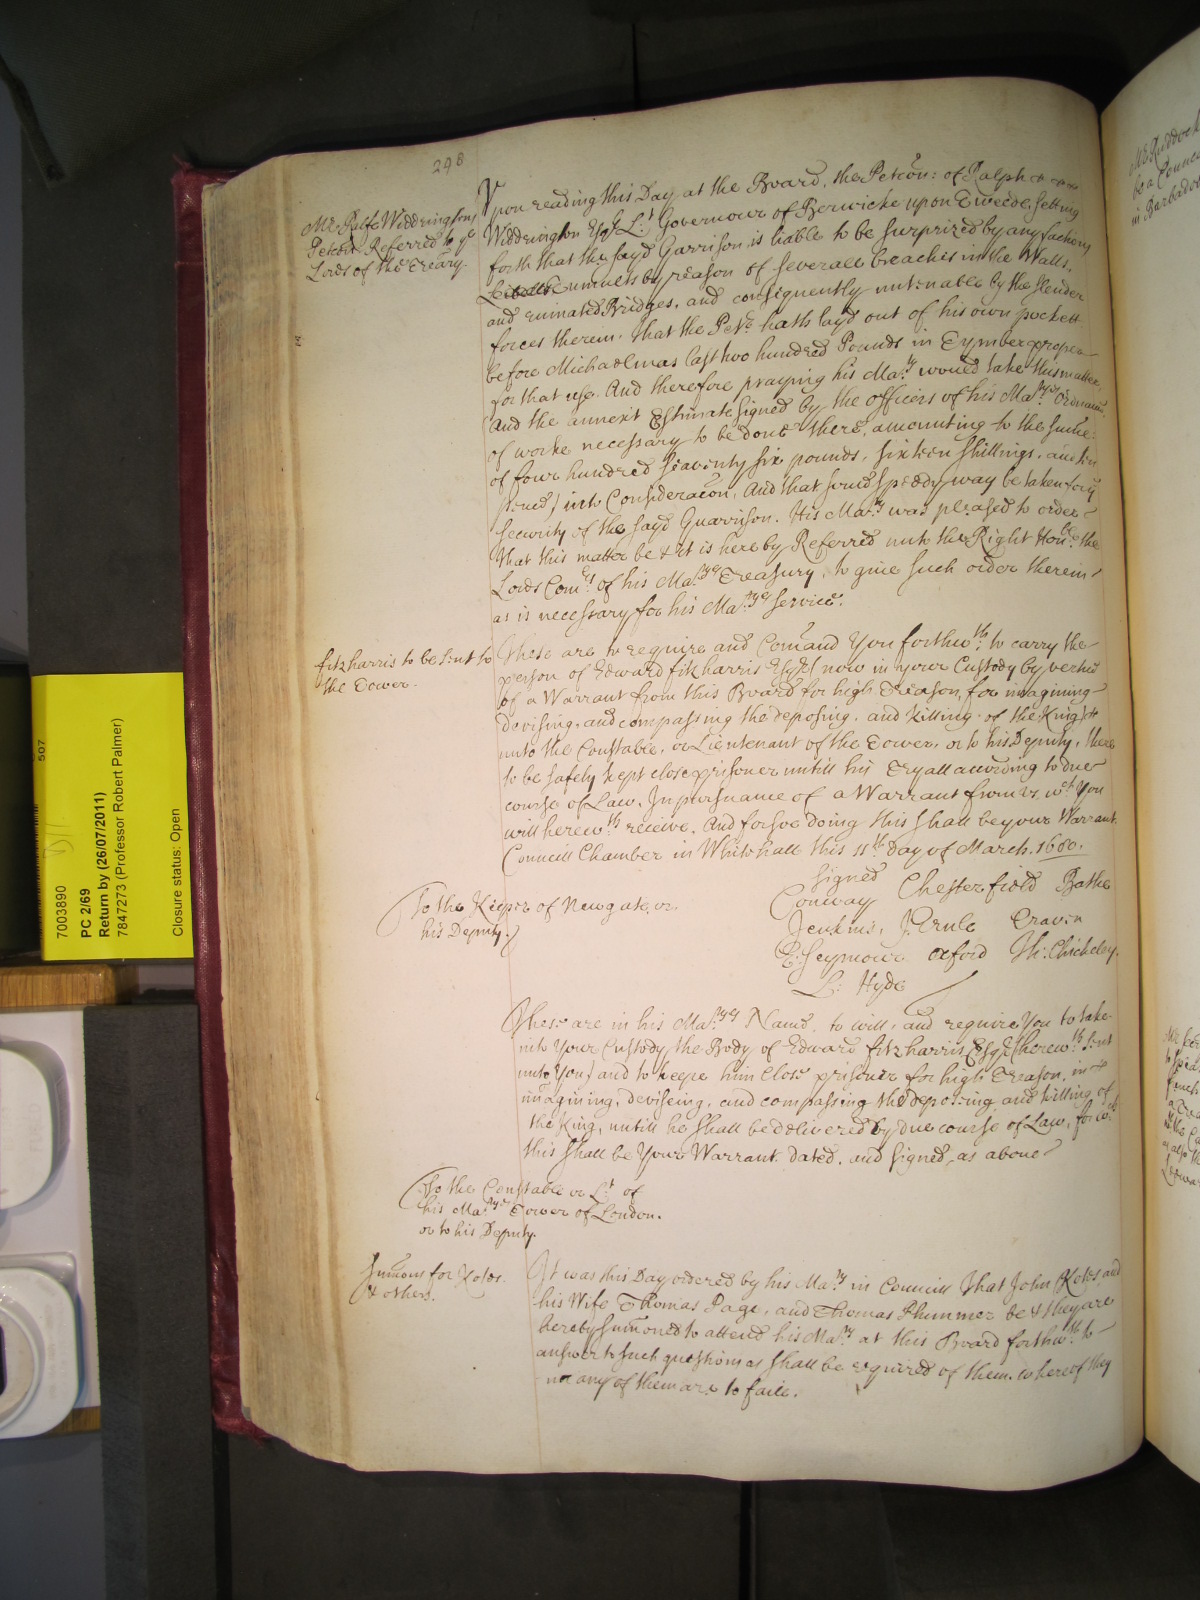 298
Mr Ralfe Widdringtons
Petcōn Referred to ye
Lords of the Treāry.
Vpon reading this Day at the Board, the Petcōn: of Ralph
Widdrington Esqr Lt. Governour of Berwicke upon Tweede, setting
forth that the sayd Garrison is liable to be surprized by any factious
by reason of severall breaches in the Walls,
and ruinated Bridges, and consequently untenable by the slender
forces therein. That the Petr. hath layd out of his own pockett
before Michaelmas last two hundred Pounds in Tymber proper
for that use. And therefore praying his Maty. would take this matter,
And the annext Estimate signed by the officers of his Matyes Ordnance,
of worke necessary to be done there, amounting to the summe
of four hundred seaventy six pounds, sixteen shillings, and ten
pence) into Consideracōn, And that some speedy way be taken for ye
security of the sayd Guarrison. His Maty. was pleased to order
that this matter be & it is hereby Referred unto the Right Honble. the
Lords Comrs. of his Matyes Treasury, to give such order therein
as is necessary for his Matyes service.
fitzharris to be sent to
the Tower.
These are to require and Com̄and You forthwth. to carry the
person of Edward fitzharris Esqr (now in your Custody by vertue
of a Warrant from this Board for high Treason, for imagining
devising, and compassing the deposing, and killing of the King)
unto the Constable, or Lieutenant of the Tower, or to his Deputy, there
to be safely kept close prisoner untill his Tryall according to due
course of Law, In pursuance of a Warrant from vs, wch You
will herewth. receive, And for soe doing this shall be your Warrant.
Councill Chamber in Whitehall this 11th. Day of March. 1680.
Signed
Conway Chesterfield Bathe
Jenkins, J. Ernle Craven
E: Seymour Oxford Th: Chicheley.
L: Hyde
To the Keeper of Newgate, or
his Deputy.
These are in his Matyes Name, to will, and require You to take
into Your Custody the Body of Edward fitzharris Esqr (herewth. sent
unto You) and to keepe him close prisoner for high Treason, in
imagining, deviseing, and compassing the deposing and killing of
the King, untill he shall be delivered by due course of Law, for wch
this shall be Your Warrant. dated, and signed, as above
To the Constable or Lt. of
his Matyes Tower of London.
or to his Deputy.
Sum̄ons for Kotos.
& others.
It was this Day ordered by his Maty. in Councill That John Kotos, and
his Wife Thomas Page, and Thomas Plummer be & they are
hereby sum̄oned to attend his Maty. at this Board forthwth. to
answer to such questions as shall be required of them. whereof they
nor any of them are to faile.
507
7003890
PC 2/69
Return by (26/07/2011)
7847273 (Professor Robert Palmer)
Closure status: Open
be a Councel
in Barbados